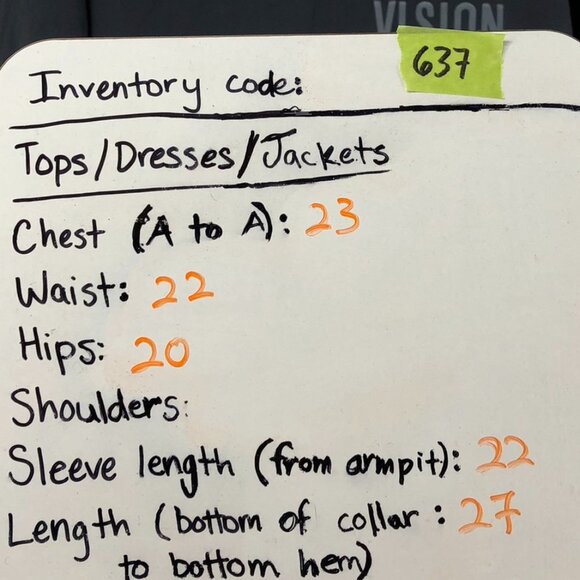 VISION
Inventory code: 637
Tops/Dresses/Jackets
Chest (A to A): 23
Waist: 22
Hips: 20
Shoulders:
Sleeve length (from armpit): 22
Length (bottom of collar : 27
to bottom hem)